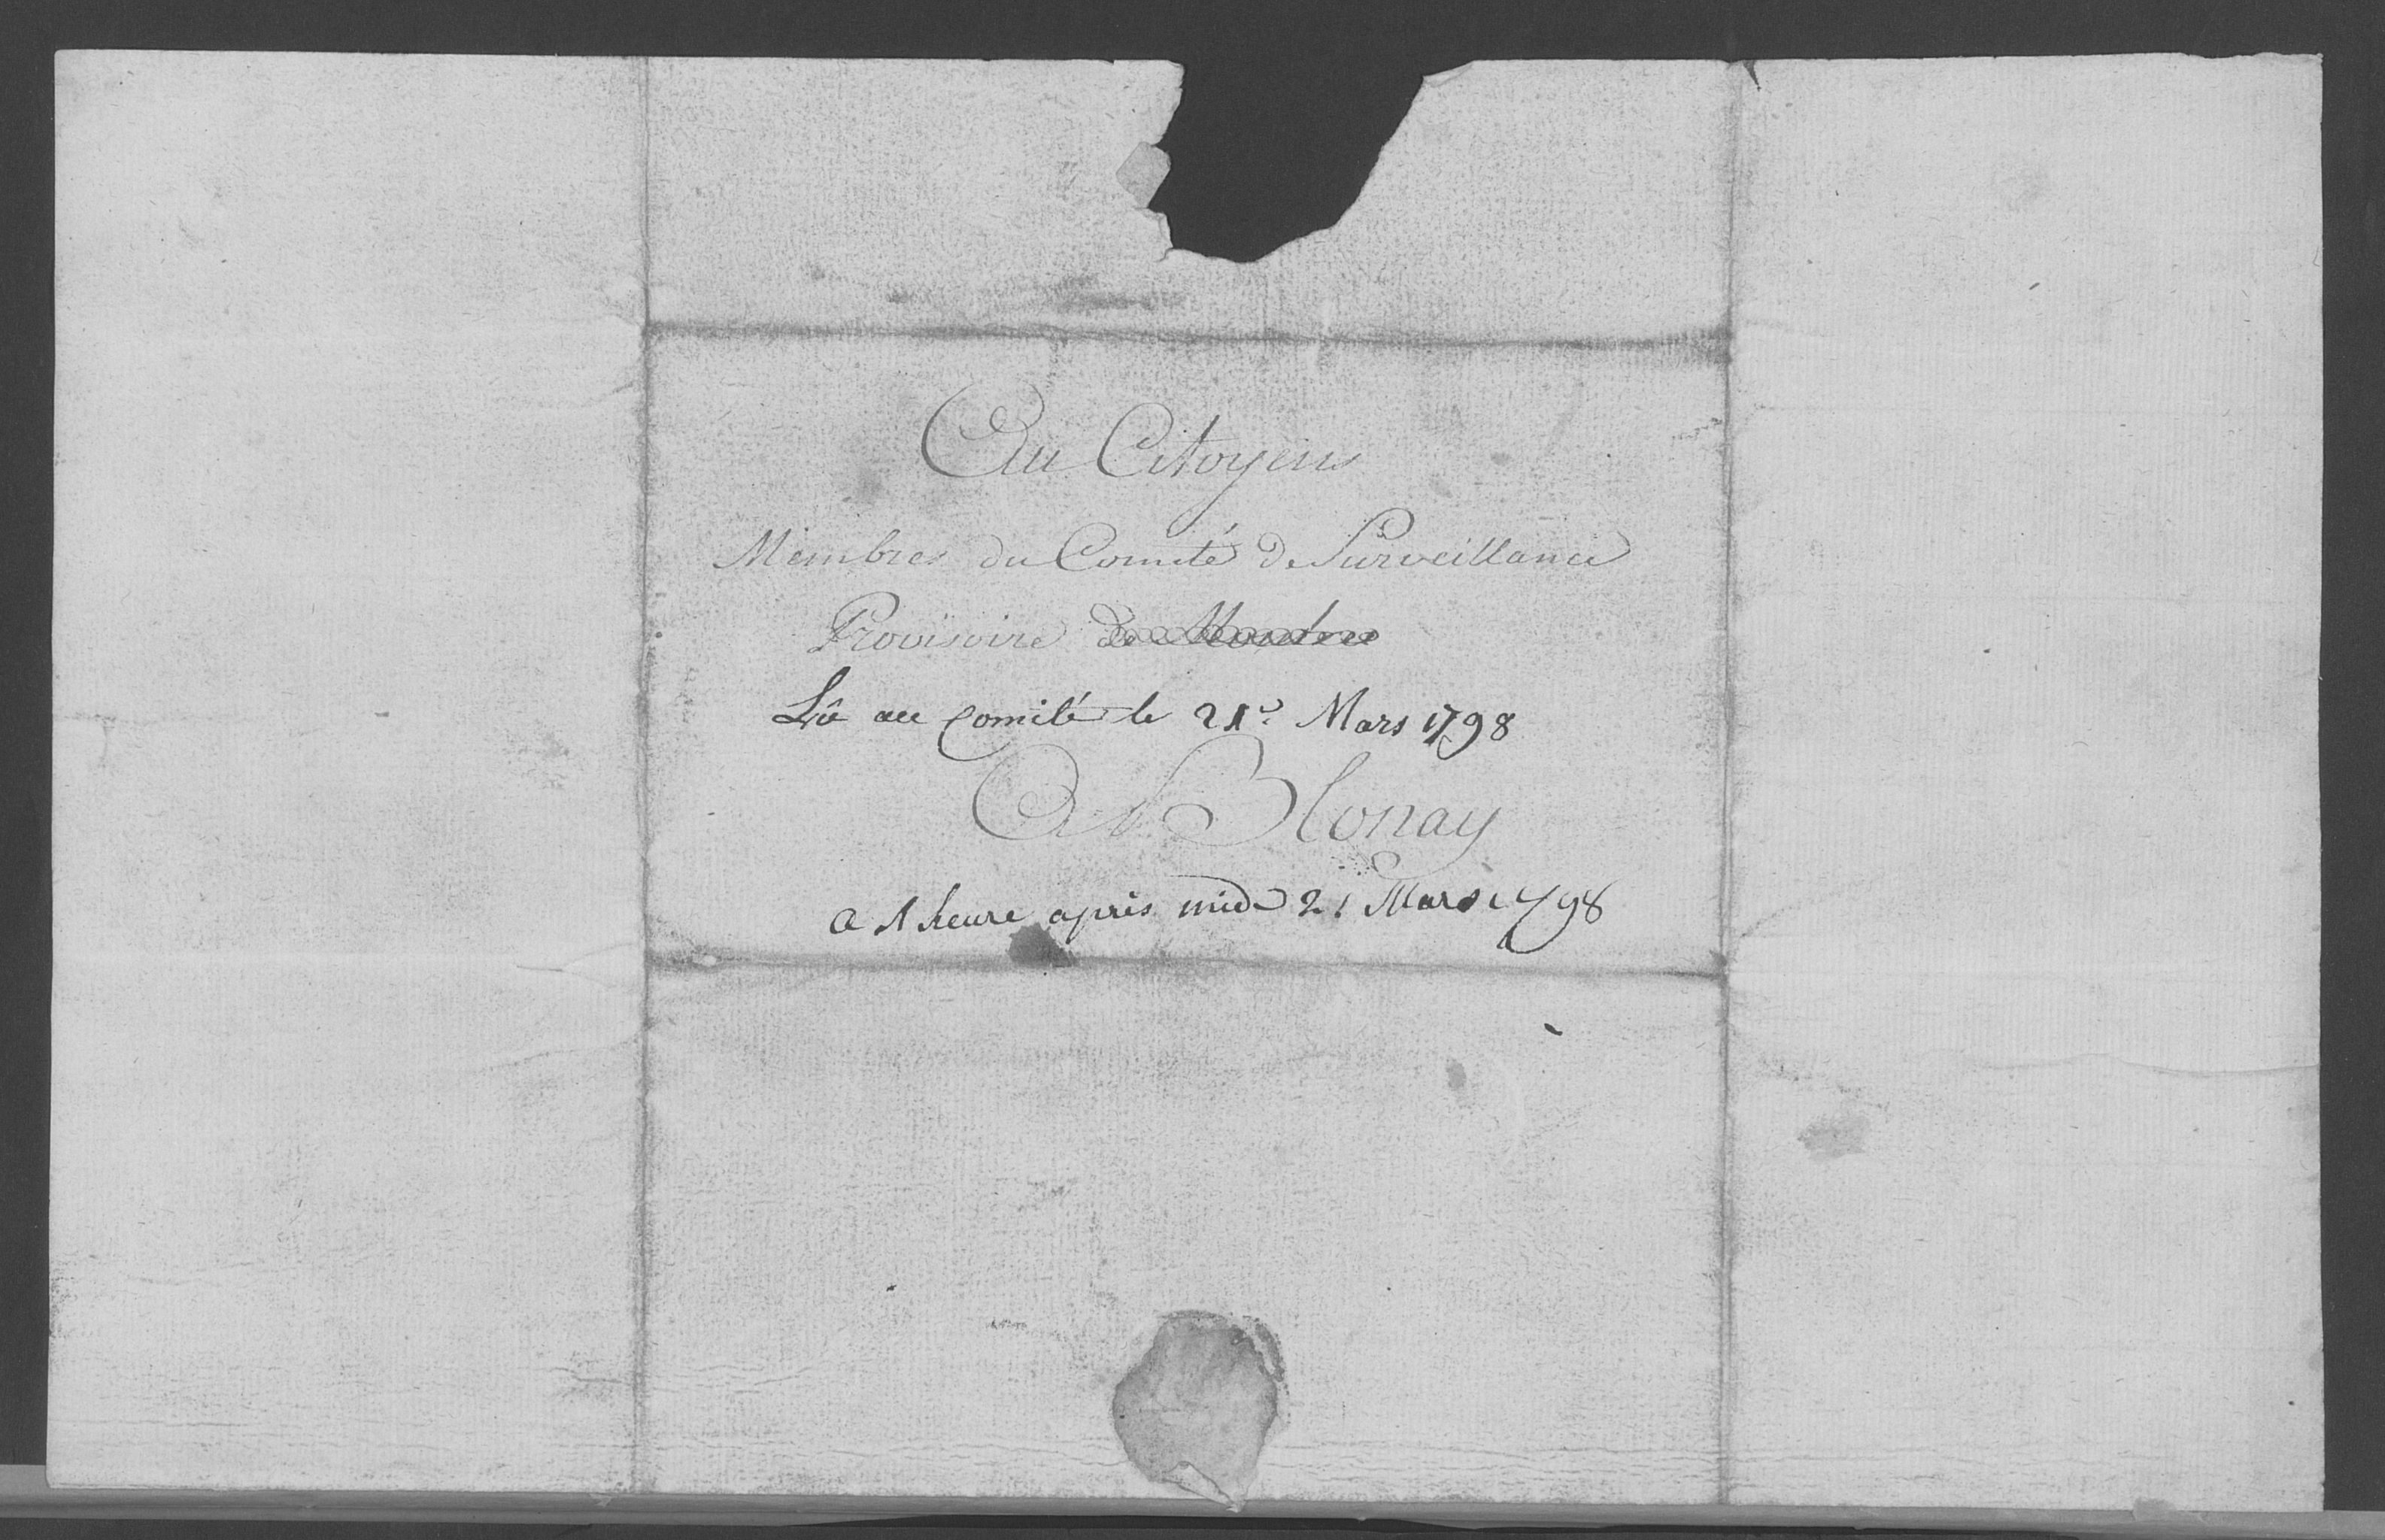 Au Citoyens
Membres du Comité de Surveillance
Provisoire de Montreu
Lû au Comité le 21e. Mars 1798
A Blonay
a 1 heure après midi 21 Mars 1798